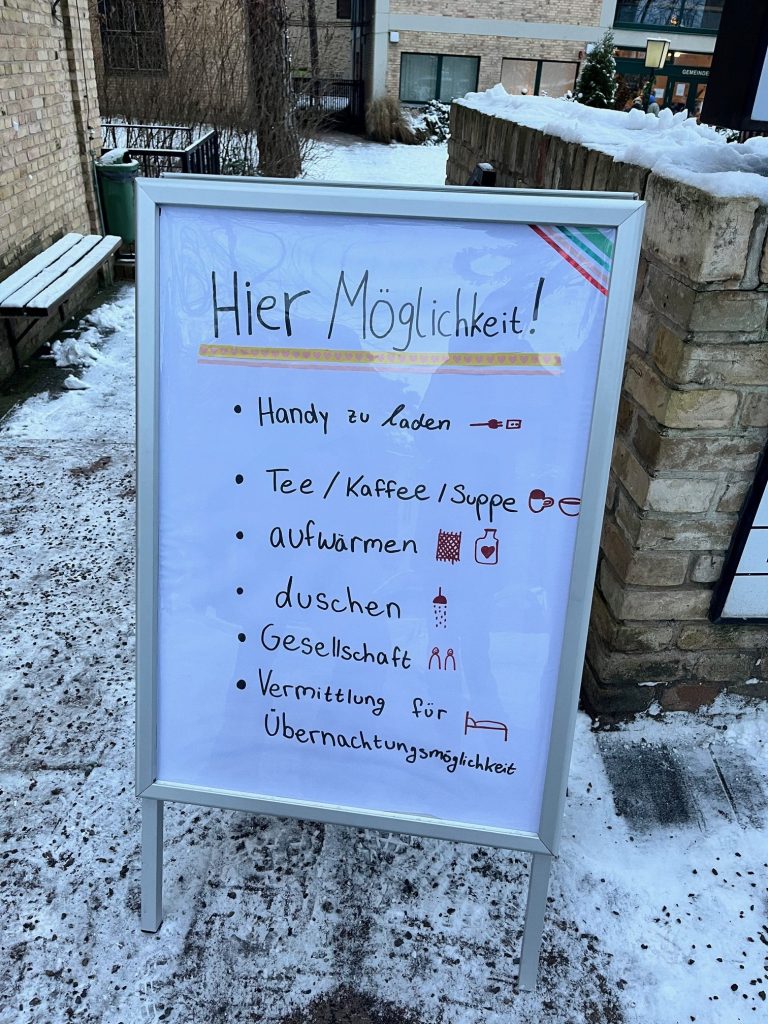 GEMEINDE
Hier Möglichkeit!
• Handy zu laden
• Tee / Kaffee / Suppe
• aufwärmen
• duschen
• Gesellschaft
• Vermittlung für
Übernachtungsmöglichkeit